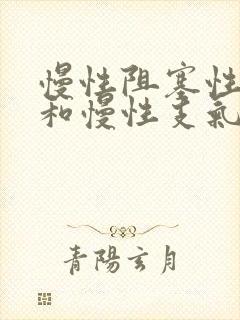 慢性阻塞性
和慢性支氣
青陽玄月